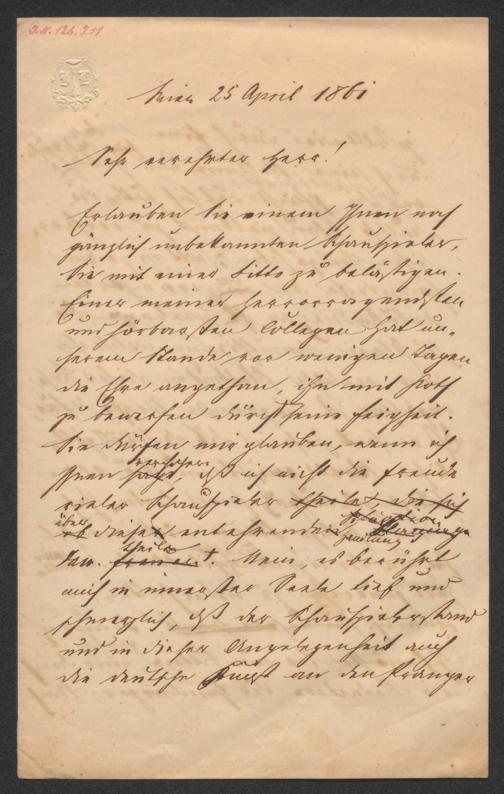 J.N. 126.211
Wien 25 April 1861
Sehr verehrter Herr!
Erlauben Sie einem Ihnen noch
gänzlich unbekannten Schauspieler,
Sie mit einer Bitte zu belästigen.
Einer meiner hervorragendsten
und hörbarsten Collegen hat un-
serem Stande vor wenigen Tagen
die Ehre angethan, ihn mit Koth
zu bewerfen durch seine Feigheit.
Sie dürfen mir glauben, wenn ich
versichere
Ihnen sage, daß ich nicht die Freude
vieler Schauspieler theile, die sich
über
ob dieser entehrenden
theile
freuen. Nein, es berührt
mich in innerster Seele tief und
schmerzlich, daß der Schauspielerstand
und in dieser Angelegenheit auch
die deutsche Kunst an den Pranger